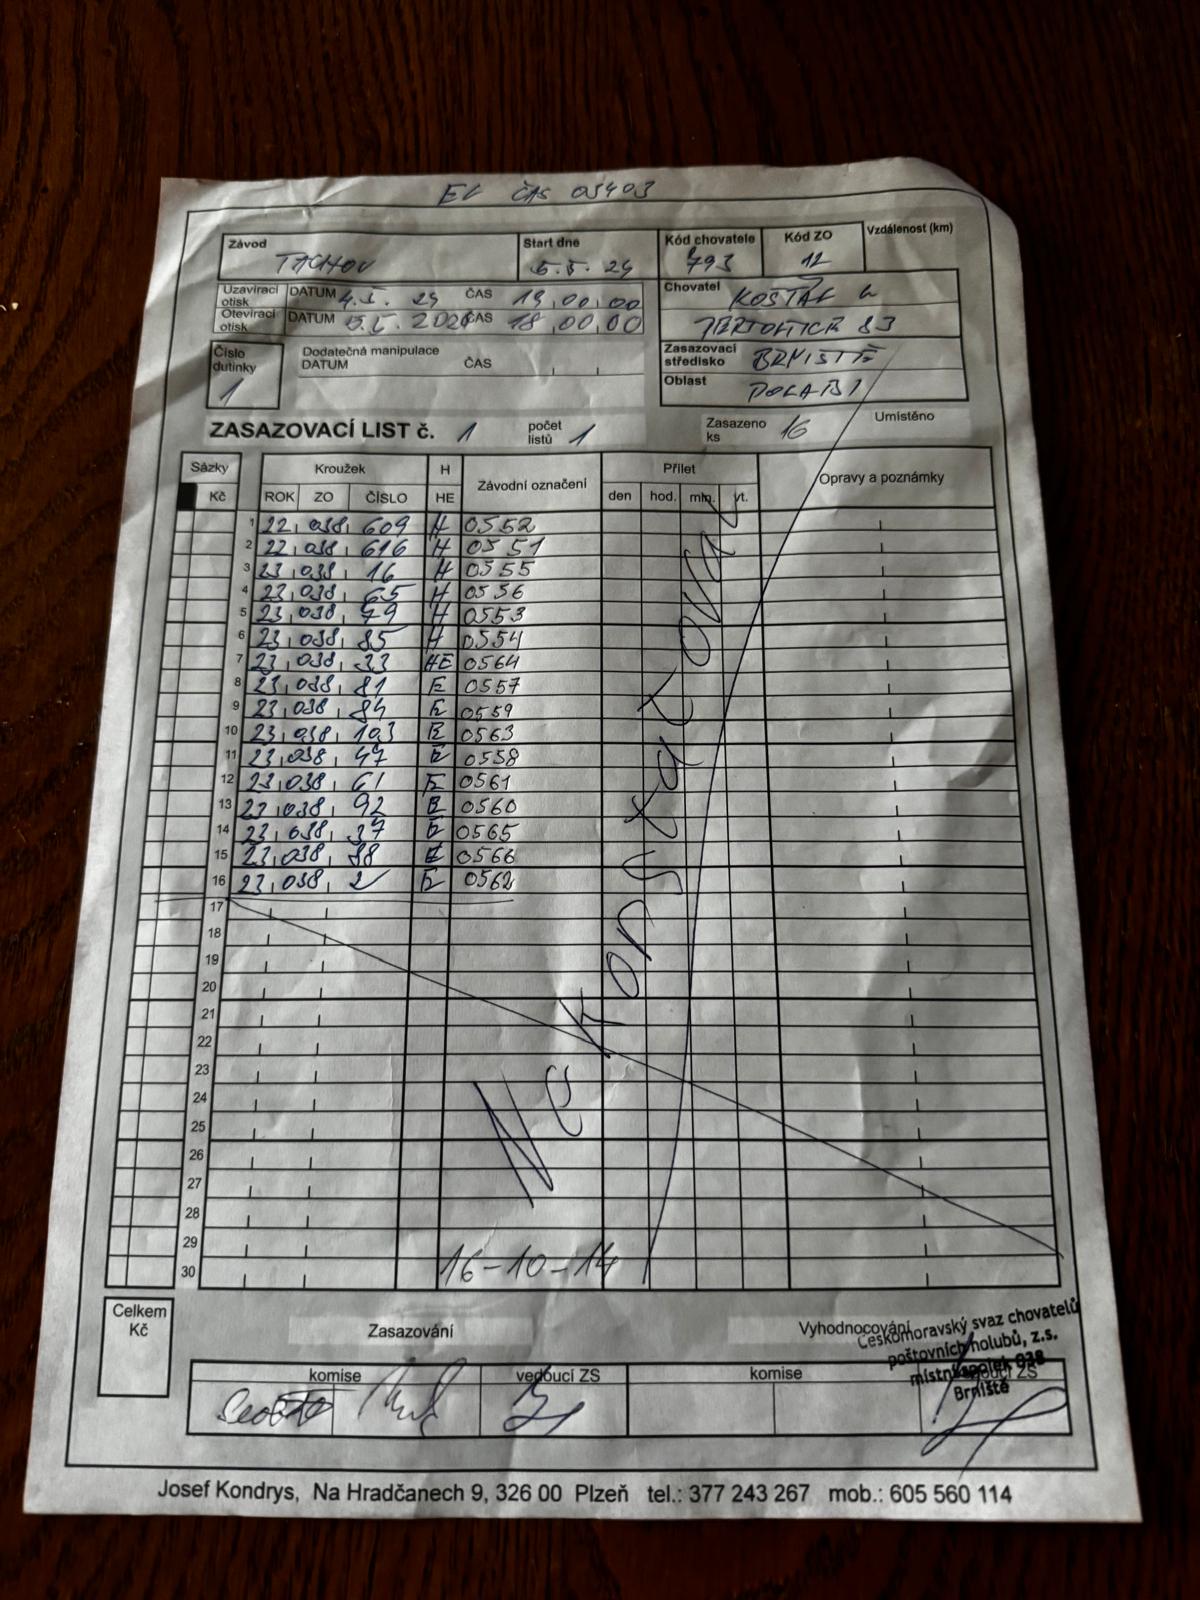 EL ČAS 05403
Závod TACHOV Start dne 5.5. 24 Kód chovatele 793 Kód ZO 12 Vzdálenost (km)
Uzavírací otisk DATUM 4.5. 24 ČAS 19,00,00
Otevírací otisk DATUM 5.5. 2024 ČAS 18,00,00
Chovatel KOŠŤÁL
83
Číslo dutinky 1
Dodatečná manipulace
DATUM ČAS
Zasazovací středisko BRNIŠTĚ
Oblast POLABÍ
ZASAZOVACÍ LIST č. 1 počet listů 1 Zasazeno ks 16 Umístěno
Sázky Kroužek H Závodní označení Přílet Opravy a poznámky
Kč ROK ZO ČÍSLO HE den hod. min. vt.
1 22 038 609 H 0552
2 22 038 616 H 0551
3 23 038 16 H 0555
4 23 038 65 H 0556
5 23 038 79 H 0553
6 23 038 85 H 0554
7 23 038 33 HE 0564
8 23 038 81 E 0557
9 23 038 84 E 0559
10 23 038 103 E 0563
11 23 038 47 E 0558
12 23 038 61 E 0561
13 23 038 92 E 0560
14 23 038 37 E 0565
15 23 038 88 E 0566
16 23 038 2 E 0562
17
18
19
20
21
22
23
24
25
26
27
28
29
30
Nekonstatoval
16-10-14
Celkem Kč
Zasazování Vyhodnocování
komise vedoucí ZS komise vedoucí ZS
Českomoravský svaz chovatelů
poštovních holubů, z.s.
místní spolek 038
Brniště
Josef Kondrys, Na Hradčanech 9, 326 00 Plzeň tel.: 377 243 267 mob.: 605 560 114